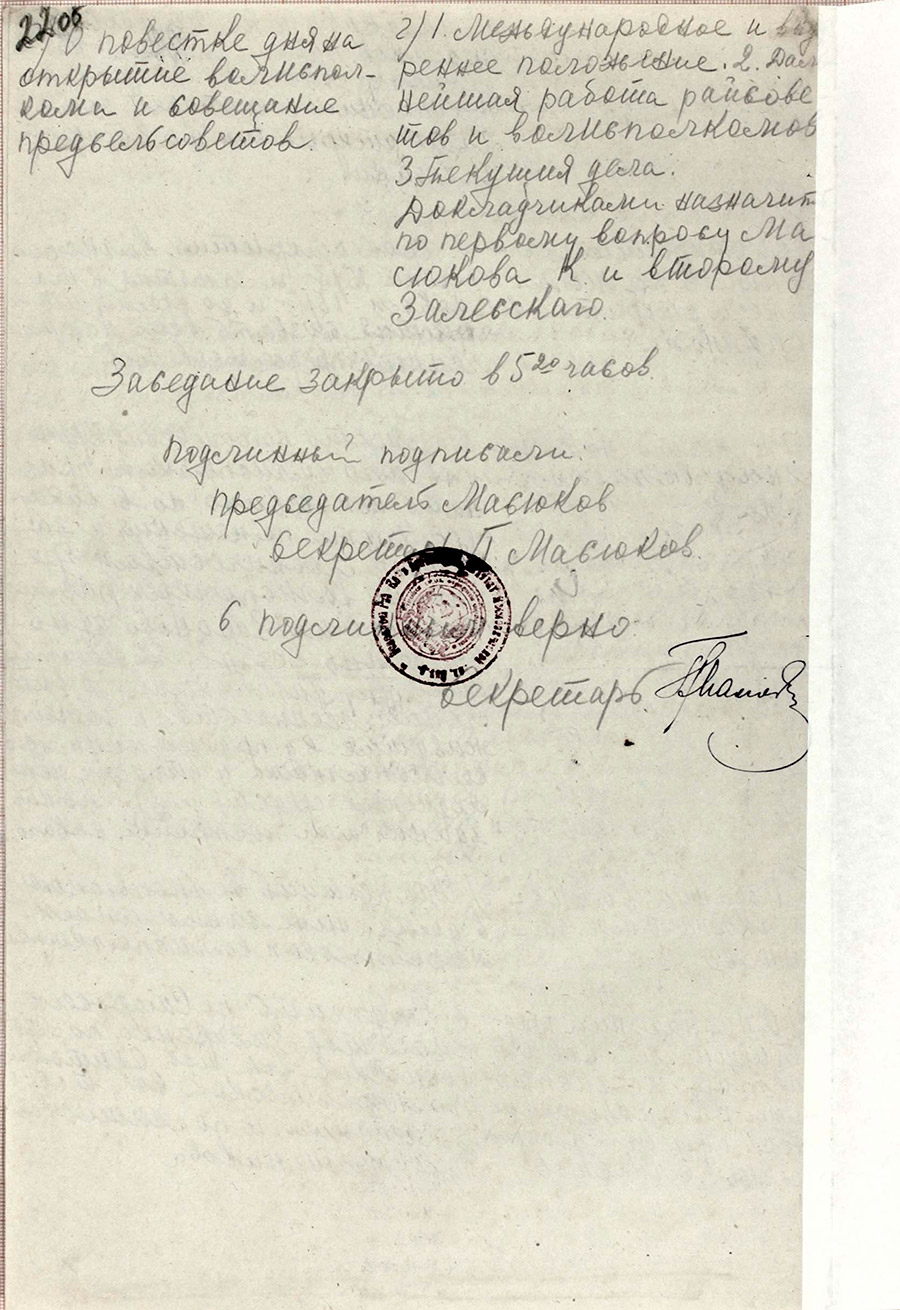 22 об
2) О повестке дня на
открытие волисполкома
кома и совещание
предсельсоветов.
2) 1. Международное и внут
реннее положение. 2. Даль
нейшая работа райсове
тов и волисполкомов
3 Текущия дела.
Докладчиками назначить
по первому вопросу Ма
сюкова К. и второму
Залевскаго.
Заседание закрыто в 5 20 часов.
Подлинный подписали:
Председатель Масюков
Секретарь П Масюков.
С подлинным верно
Секретарь